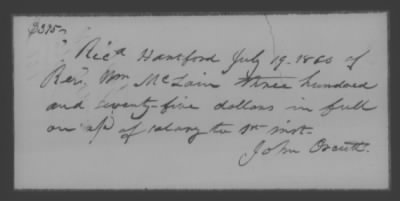 $375.
Rec'd Hartford July 19. 1860 of
Rev. Wm McLain three hundred
and seventy-five dollars in full
on a/c of salary to 1st inst.
John Orcutt.